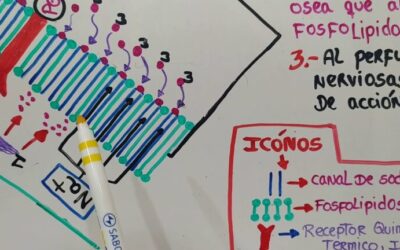 osea que al
FOSFOLIPIDO
3.- AL PERFU
NERVIOSAS
DE ACCIÓN
3
3
3
3
3
Na+
SABO
ICÓNOS
CANAL DE SOD
FOSFOLIPIDOS
RECEPTOR QUIM
TERMICO,